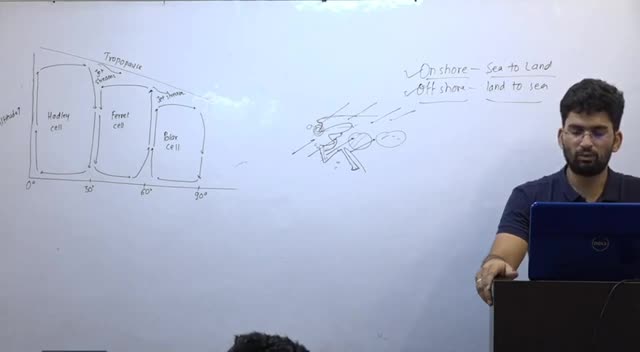 Tropopause
Jet Stream
Jet Stream
Hadley
cell
Ferrel
cell
Polar
cell
0°
30°
60°
90°
On shore – Sea to Land
Off shore – land to sea
DELL